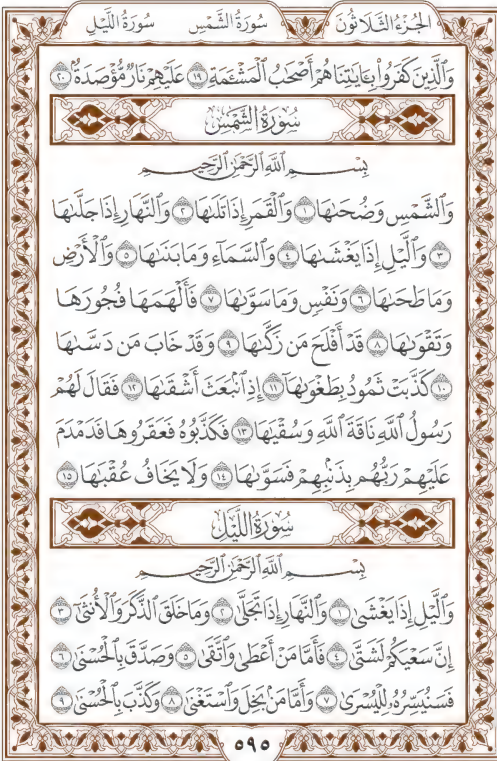 الجُزْءُ الثَّلَاثُونَ سُورَةُ الشَّمْسِ سُورَةُ اللَّيْلِ
وَٱلَّذِينَ كَفَرُوا۟ بِـَٔايَٰتِنَا هُمْ أَصْحَٰبُ ٱلْمَشْـَٔمَةِ ١٩ عَلَيْهِمْ نَارٌ مُّؤْصَدَةٌۢ ٢٠
سُورَةُ الشَّمْسِ
بِسْمِ ٱللَّهِ ٱلرَّحْمَٰنِ ٱلرَّحِيمِ
وَٱلشَّمْسِ وَضُحَىٰهَا ١ وَٱلْقَمَرِ إِذَا تَلَىٰهَا ٢ وَٱلنَّهَارِ إِذَا جَلَّىٰهَا
٣ وَٱلَّيْلِ إِذَا يَغْشَىٰهَا ٤ وَٱلسَّمَآءِ وَمَا بَنَىٰهَا ٥ وَٱلْأَرْضِ
وَمَا طَحَىٰهَا ٦ وَنَفْسٍ وَمَا سَوَّىٰهَا ٧ فَأَلْهَمَهَا فُجُورَهَا
وَتَقْوَىٰهَا ٨ قَدْ أَفْلَحَ مَن زَكَّىٰهَا ٩ وَقَدْ خَابَ مَن دَسَّىٰهَا
١٠ كَذَّبَتْ ثَمُودُ بِطَغْوَىٰهَآ ١١ إِذِ ٱنۢبَعَثَ أَشْقَىٰهَا ١٢ فَقَالَ لَهُمْ
رَسُولُ ٱللَّهِ نَاقَةَ ٱللَّهِ وَسُقْيَٰهَا ١٣ فَكَذَّبُوهُ فَعَقَرُوهَا فَدَمْدَمَ
عَلَيْهِمْ رَبُّهُم بِذَنۢبِهِمْ فَسَوَّىٰهَا ١٤ وَلَا يَخَافُ عُقْبَٰهَا ١٥
سُورَةُ اللَّيْلِ
بِسْمِ ٱللَّهِ ٱلرَّحْمَٰنِ ٱلرَّحِيمِ
وَٱلَّيْلِ إِذَا يَغْشَىٰ ١ وَٱلنَّهَارِ إِذَا تَجَلَّىٰ ٢ وَمَا خَلَقَ ٱلذَّكَرَ وَٱلْأُنثَىٰٓ ٣
إِنَّ سَعْيَكُمْ لَشَتَّىٰ ٤ فَأَمَّا مَنْ أَعْطَىٰ وَٱتَّقَىٰ ٥ وَصَدَّقَ بِٱلْحُسْنَىٰ ٦
فَسَنُيَسِّرُهُۥ لِلْيُسْرَىٰ ٧ وَأَمَّا مَنۢ بَخِلَ وَٱسْتَغْنَىٰ ٨ وَكَذَّبَ بِٱلْحُسْنَىٰ ٩
٥٩٥